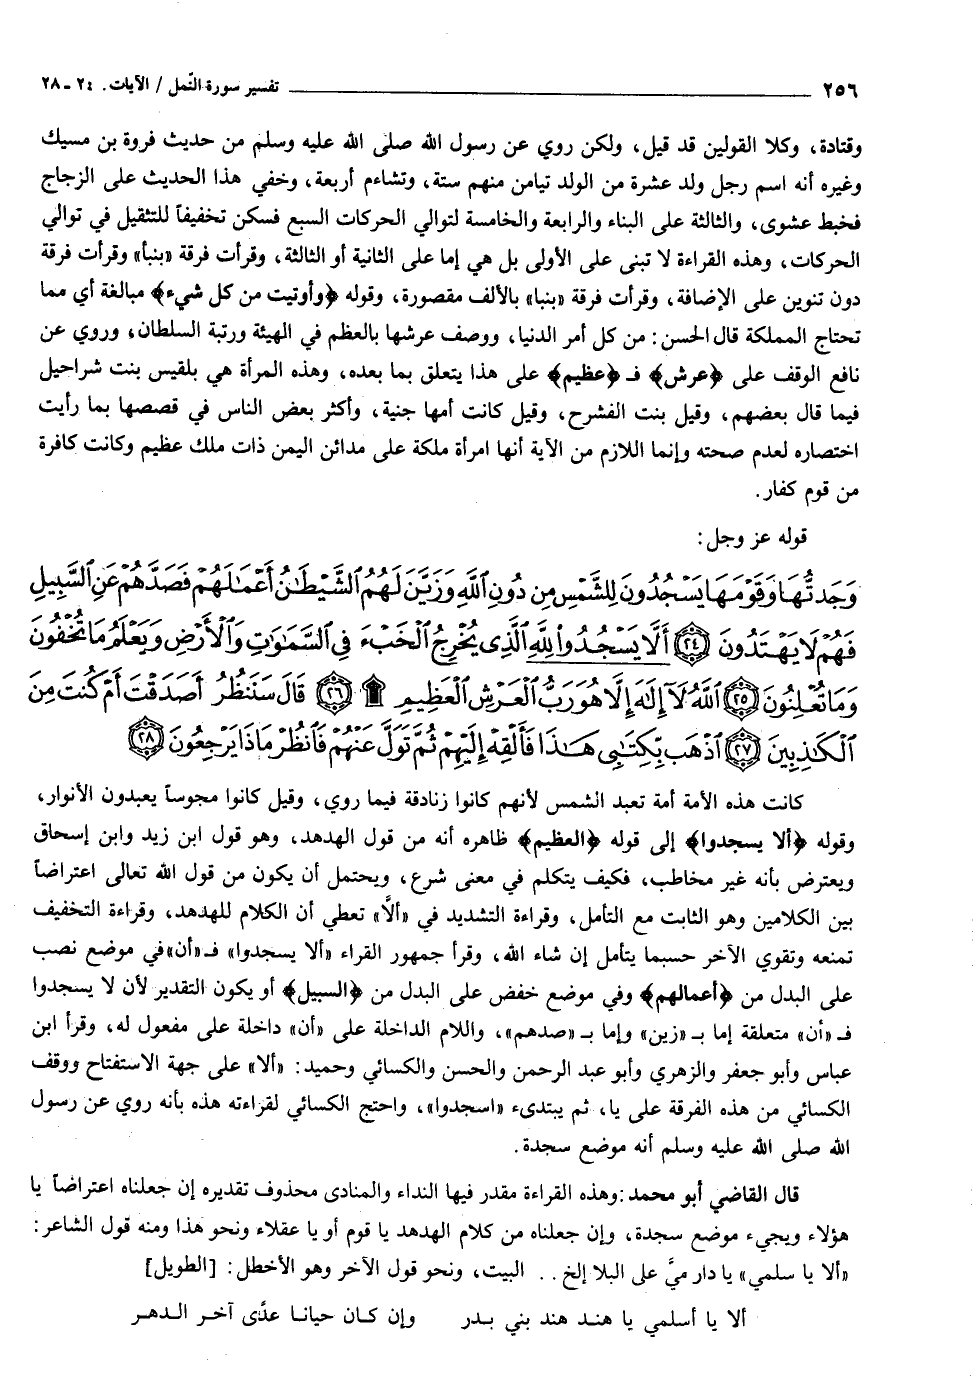 ٢٥٦ تفسير سورة النّمل / الآيات. ٢٤ ـ ٢٨
وقتادة، وكلا القولين قد قيل، ولكن روي عن رسول الله صلى الله عليه وسلم من حديث فروة بن مسيك
وغيره أنه اسم رجل ولد عشرة من الولد تيامن منهم ستة، وتشاءم أربعة، وخفي هذا الحديث على الزجاج
فخبط عشوى، والثالثة على البناء والرابعة والخامسة لتوالي الحركات السبع فسكن تخفيفاً للتثقيل في توالي
الحركات، وهذه القراءة لا تبنى على الأولى بل هي إما على الثانية أو الثالثة، وقرأت فرقة «بنبأ» وقرأت فرقة
دون تنوين على الإضافة، وقرأت فرقة «بنبا» بالألف مقصورة، وقوله ﴿وأوتيت من كل شيء﴾ مبالغة أي مما
تحتاج المملكة قال الحسن: من كل أمر الدنيا، ووصف عرشها بالعظم في الهيئة ورتبة السلطان، وروي عن
نافع الوقف على ﴿عرش﴾ فـ ﴿عظيم﴾ على هذا يتعلق بما بعده، وهذه المرأة هي بلقيس بنت شراحيل
فيما قال بعضهم، وقيل بنت الفشرح، وقيل كانت أمها جنية، وأكثر بعض الناس في قصصها بما رأيت
اختصاره لعدم صحته وإنما اللازم من الآية أنها امرأة ملكة على مدائن اليمن ذات ملك عظيم وكانت كافرة
من قوم كفار.
قوله عز وجل:
وَجَدتُّهَا وَقَوْمَهَا يَسْجُدُونَ لِلشَّمْسِ مِن دُونِ ٱللَّهِ وَزَيَّنَ لَهُمُ ٱلشَّيْطَٰنُ أَعْمَٰلَهُمْ فَصَدَّهُمْ عَنِ ٱلسَّبِيلِ
فَهُمْ لَا يَهْتَدُونَ ٢٤ أَلَّا يَسْجُدُوا۟ لِلَّهِ ٱلَّذِى يُخْرِجُ ٱلْخَبْءَ فِى ٱلسَّمَٰوَٰتِ وَٱلْأَرْضِ وَيَعْلَمُ مَا تُخْفُونَ
وَمَا تُعْلِنُونَ ٢٥ ٱللَّهُ لَآ إِلَٰهَ إِلَّا هُوَ رَبُّ ٱلْعَرْشِ ٱلْعَظِيمِ ۩ ٢٦ قَالَ سَنَنظُرُ أَصَدَقْتَ أَمْ كُنتَ مِنَ
ٱلْكَٰذِبِينَ ٢٧ ٱذْهَب بِّكِتَٰبِى هَٰذَا فَأَلْقِهْ إِلَيْهِمْ ثُمَّ تَوَلَّ عَنْهُمْ فَٱنظُرْ مَاذَا يَرْجِعُونَ ٢٨
كانت هذه الأمة أمة تعبد الشمس لأنهم كانوا زنادقة فيما روي، وقيل كانوا مجوساً يعبدون الأنوار،
وقوله ﴿ألا يسجدوا﴾ إلى قوله ﴿العظيم﴾ ظاهره أنه من قول الهدهد، وهو قول ابن زيد وابن إسحاق
ويعترض بأنه غير مخاطب، فكيف يتكلم في معنى شرع، ويحتمل أن يكون من قول الله تعالى اعتراضاً
بين الكلامين وهو الثابت مع التأمل، وقراءة التشديد في «ألَّا» تعطي أن الكلام للهدهد، وقراءة التخفيف
تمنعه وتقوي الآخر حسبما يتأمل إن شاء الله، وقرأ جمهور القراء «ألا يسجدوا» فـ«أن»في موضع نصب
على البدل من ﴿أعمالهم﴾ وفي موضع خفض على البدل من ﴿السبيل﴾ أو يكون التقدير لأن لا يسجدوا
فـ «أن» متعلقة إما بـ «زين» وإما بـ «صدهم»، واللام الداخلة على «أن» داخلة على مفعول له، وقرأ ابن
عباس وأبو جعفر والزهري وأبو عبد الرحمن والحسن والكسائي وحميد: «ألا» على جهة الاستفتاح ووقف
الكسائي من هذه الفرقة على يا، ثم يبتدىء «اسجدوا»، واحتج الكسائي لقراءته هذه بأنه روي عن رسول
الله صلى الله عليه وسلم أنه موضع سجدة.
قال القاضي أبو محمد :وهذه القراءة مقدر فيها النداء والمنادى محذوف تقديره إن جعلناه اعتراضاً يا
هؤلاء ويجيء موضع سجدة، وإن جعلناه من كلام الهدهد يا قوم أو يا عقلاء ونحو هذا ومنه قول الشاعر:
«ألا يا سلمي» يا دار ميَّ على البلا إلخ. . البيت، ونحو قول الآخر وهو الأخطل: [الطويل]
ألا يا أسلمي يا هند هند بني بدر وإن كان حيانا عدًى آخر الدهر